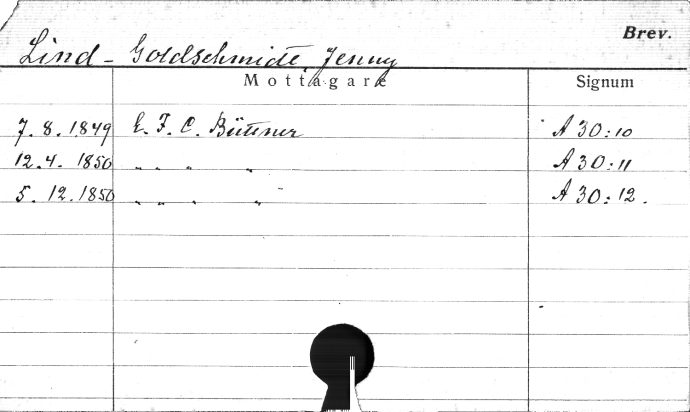 Brev.
Lind - Goldschmidt, Jenny
Mottagare Signum
7. 8. 1849 E. F. C. Büttner A 30:10
12. 4. 1850 " " " " A 30:11
5. 12. 1850 " " " " A 30:12.